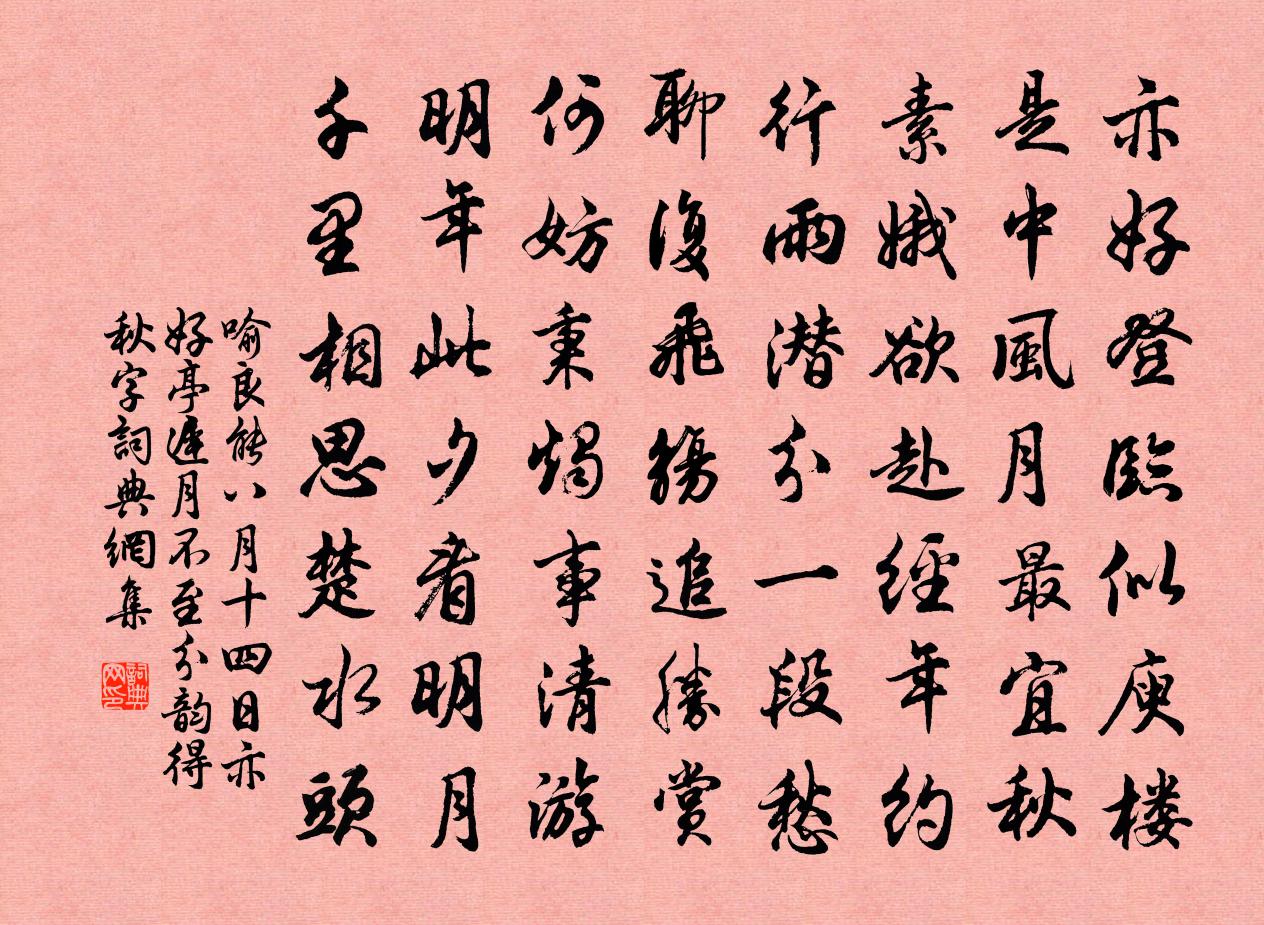 亦好登臨似庾楼
是中風月最宜秋
素娥欲赴經年約
行雨潜分一段愁
聊復飛觴追勝賞
何妨秉燭事清游
明年此夕看明月
千里相思楚水頭
喻良能八月十四日亦
好亭遲月不至分韵得
秋字詞典網集
詞典
网印